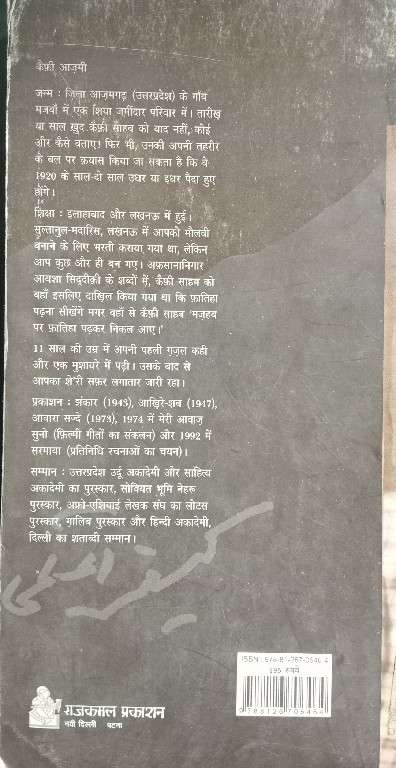 कैफ़ी आज़मी
जन्म : ज़िला आज़मगढ़ (उत्तरप्रदेश) के गाँव
मजवाँ में एक शिया ज़मींदार परिवार में। तारीख़
या साल ख़ुद कैफ़ी साहब को याद नहीं, कोई
और कैसे बताए! फिर भी, उनकी अपनी तहरीर
के बल पर क़यास किया जा सकता है कि वे
1920 के साल-दो साल उधर या इधर पैदा हुए
होंगे।
शिक्षा : इलाहाबाद और लखनऊ में हुई।
सुल्तानुल-मदारिस, लखनऊ में आपको मौलवी
बनाने के लिए भरती कराया गया था, लेकिन
आप कुछ और ही बन गए। अफ़सानानिगार
आयशा सिद्दीक़ी के शब्दों में, कैफ़ी साहब को
वहाँ इसलिए दाख़िल किया गया था कि फ़ातिहा
पढ़ना सीखेंगे मगर वहाँ से कैफ़ी साहब 'मज़हब
पर फ़ातिहा पढ़कर निकल आए।'
11 साल की उम्र में अपनी पहली ग़ज़ल कही
और एक मुशायरे में पढ़ी। उसके बाद से
आपका शे'री सफ़र लगातार जारी रहा।
प्रकाशन : झंकार (1943), आख़िरे-शब (1947),
आवारा सज्दे (1973), 1974 में मेरी आवाज़
सुनो (फ़िल्मी गीतों का संकलन) और 1992 में
सरमाया (प्रतिनिधि रचनाओं का चयन)।
सम्मान : उत्तरप्रदेश उर्दू अकादेमी और साहित्य
अकादेमी का पुरस्कार, सोवियत भूमि नेहरू
पुरस्कार, अफ़्रो-एशियाई लेखक संघ का लोटस
पुरस्कार, ग़ालिब पुरस्कार और हिन्दी अकादेमी,
दिल्ली का शताब्दी सम्मान।
کیفی اعظمی
ISBN :
रुपये
राजकमल प्रकाशन
नयी दिल्ली पटना